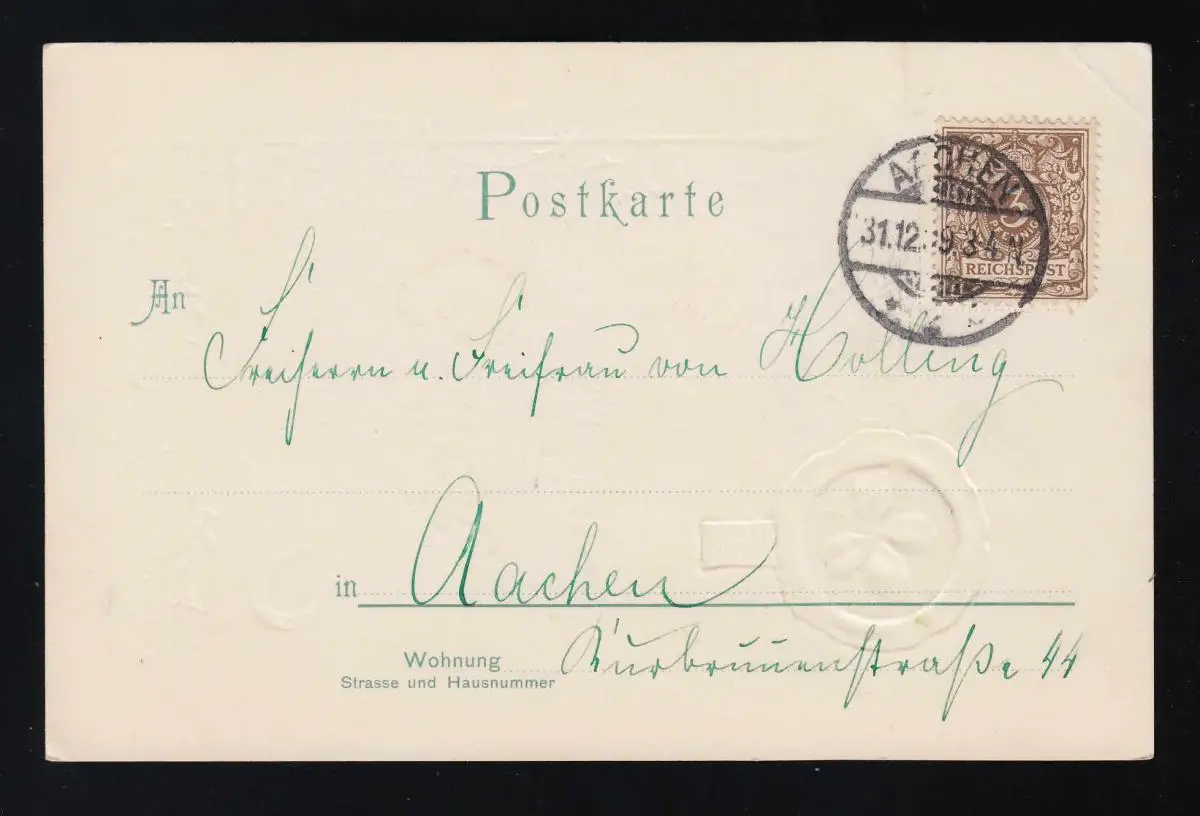 Postkarte
AACHEN
31.12. 99 3-4 N.
3
PFENNIG
REICHSPOST
An
Freiherrn u. Freifrau von Holling
in Aachen
Wohnung Kurbrunnenstraße 44
Strasse und Hausnummer